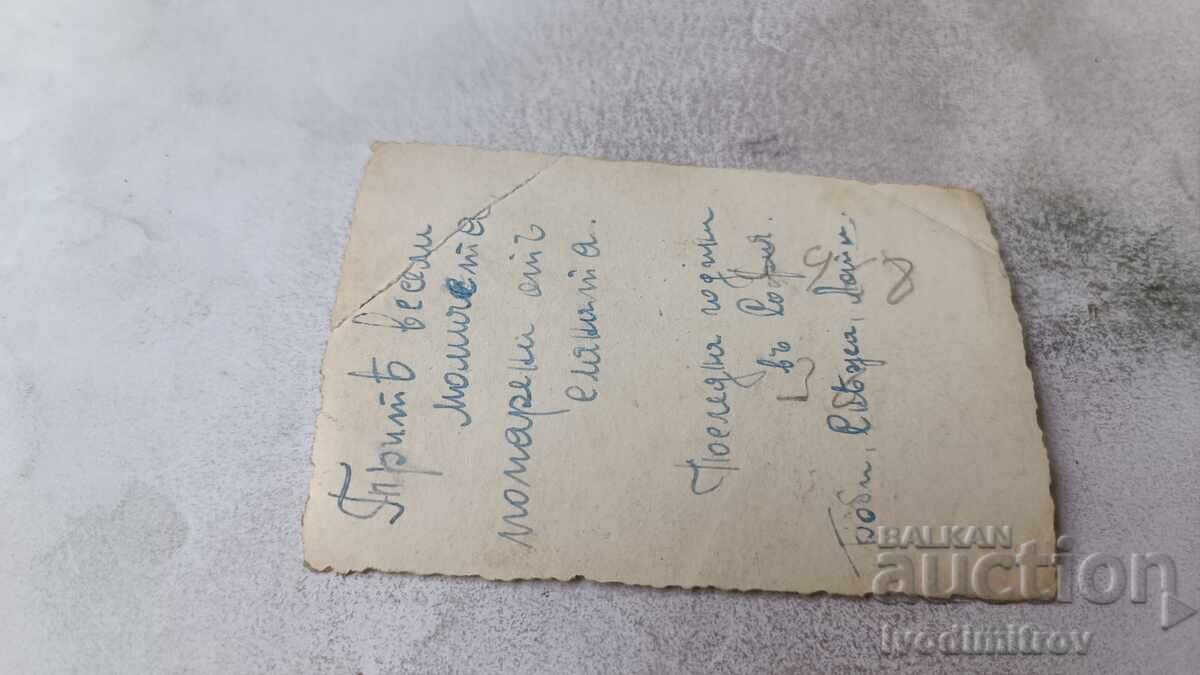 Тритѣ весели
момичета
попарени отъ
сланата.
Последна година
въ София.
Боби, Свѣжа,
BALKAN
auction
ivodimitrov